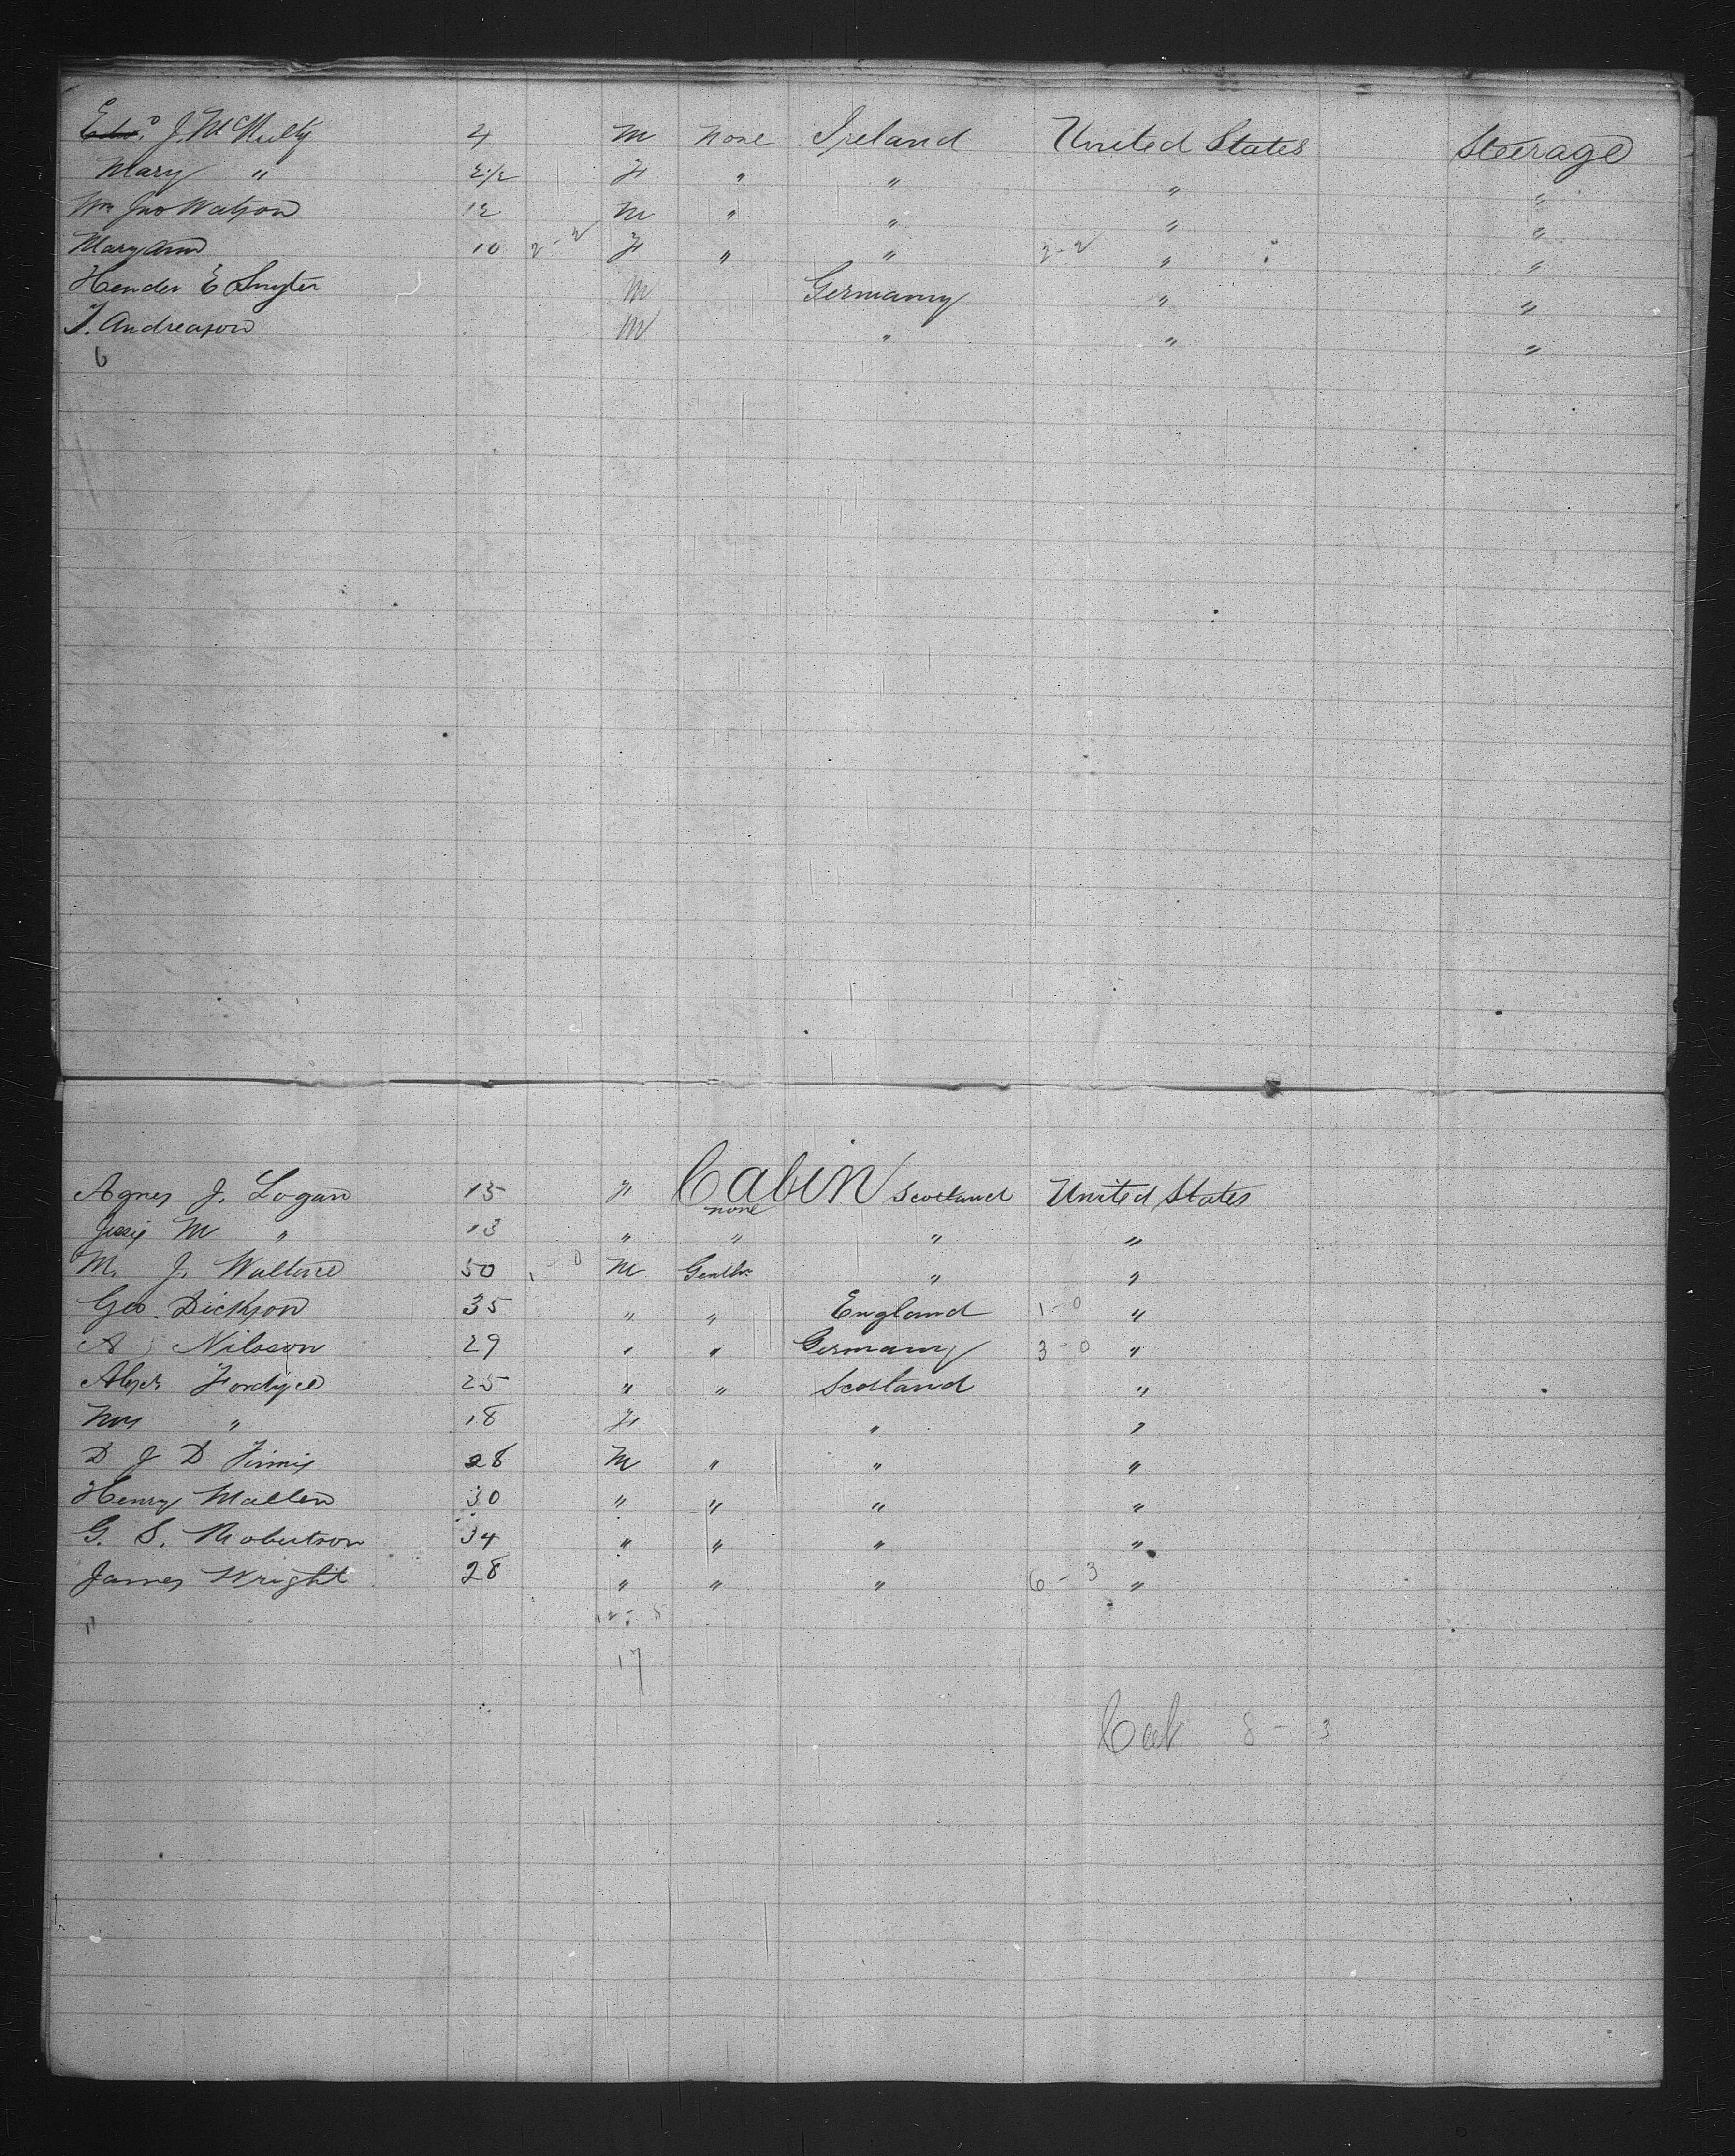 Edwd. J. McNulty 4 M None Ireland United States Steerage
Mary " 2 1/2 F " " " "
Wm Jno Watson 12 M " " " "
Mary Ann 10 2-2 F " " 2-2 " "
Hender E Snyter M Germany " "
J. Andreason M " " "
6
Cabin
Agnes J. Logan 15 F none Scotland United States
Jessie M " 13 " " " "
M. J. Wallace 50 M Gentln " "
Geo. Dickson 35 " " England 1-0 "
A Nilsson 29 " " Germany 3-0 "
Alexr Fordyce 25 " " Scotland "
Mrs " 18 F " "
D J D 28 M " " "
Henry Mallen 30 " " " "
G. S. Robertson 34 " " " "
James Wright 28 " " " 6-3 "
11 12-5
17
8-3